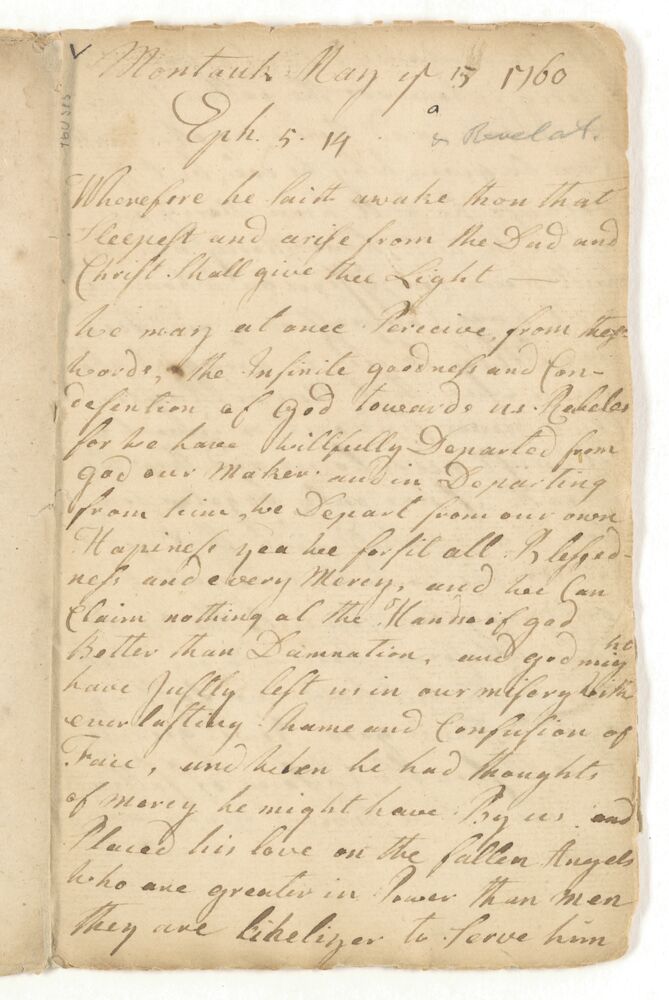 Montauk May ye 15 1760
Eph. 5. 14 a & Revelat.
760 315
Wherefore he saith awake thou that
Sleepest and arise from the Dad and
Christ Shall give thee Light —
We may at once Perceive, from these
words, the Infinite goodness and Con-
desention of God towards us Rebeles
for we have willfully Departed from
god our Maker and in Departing
from him, we Depart from our own
Hapiness yea wee forfit all Blessed-
ness and every Mercy, and we Can
Claim nothing at the Hands of god
Better than Damnation, and god might
have Justly left us in our misery with
everlasting Shame and Confusion of
Face, and when he had thoughts
of mercy he might have By us and
Placed his love on the fallen Angels
who are greater in Power than men
they are likelieer to Serve him